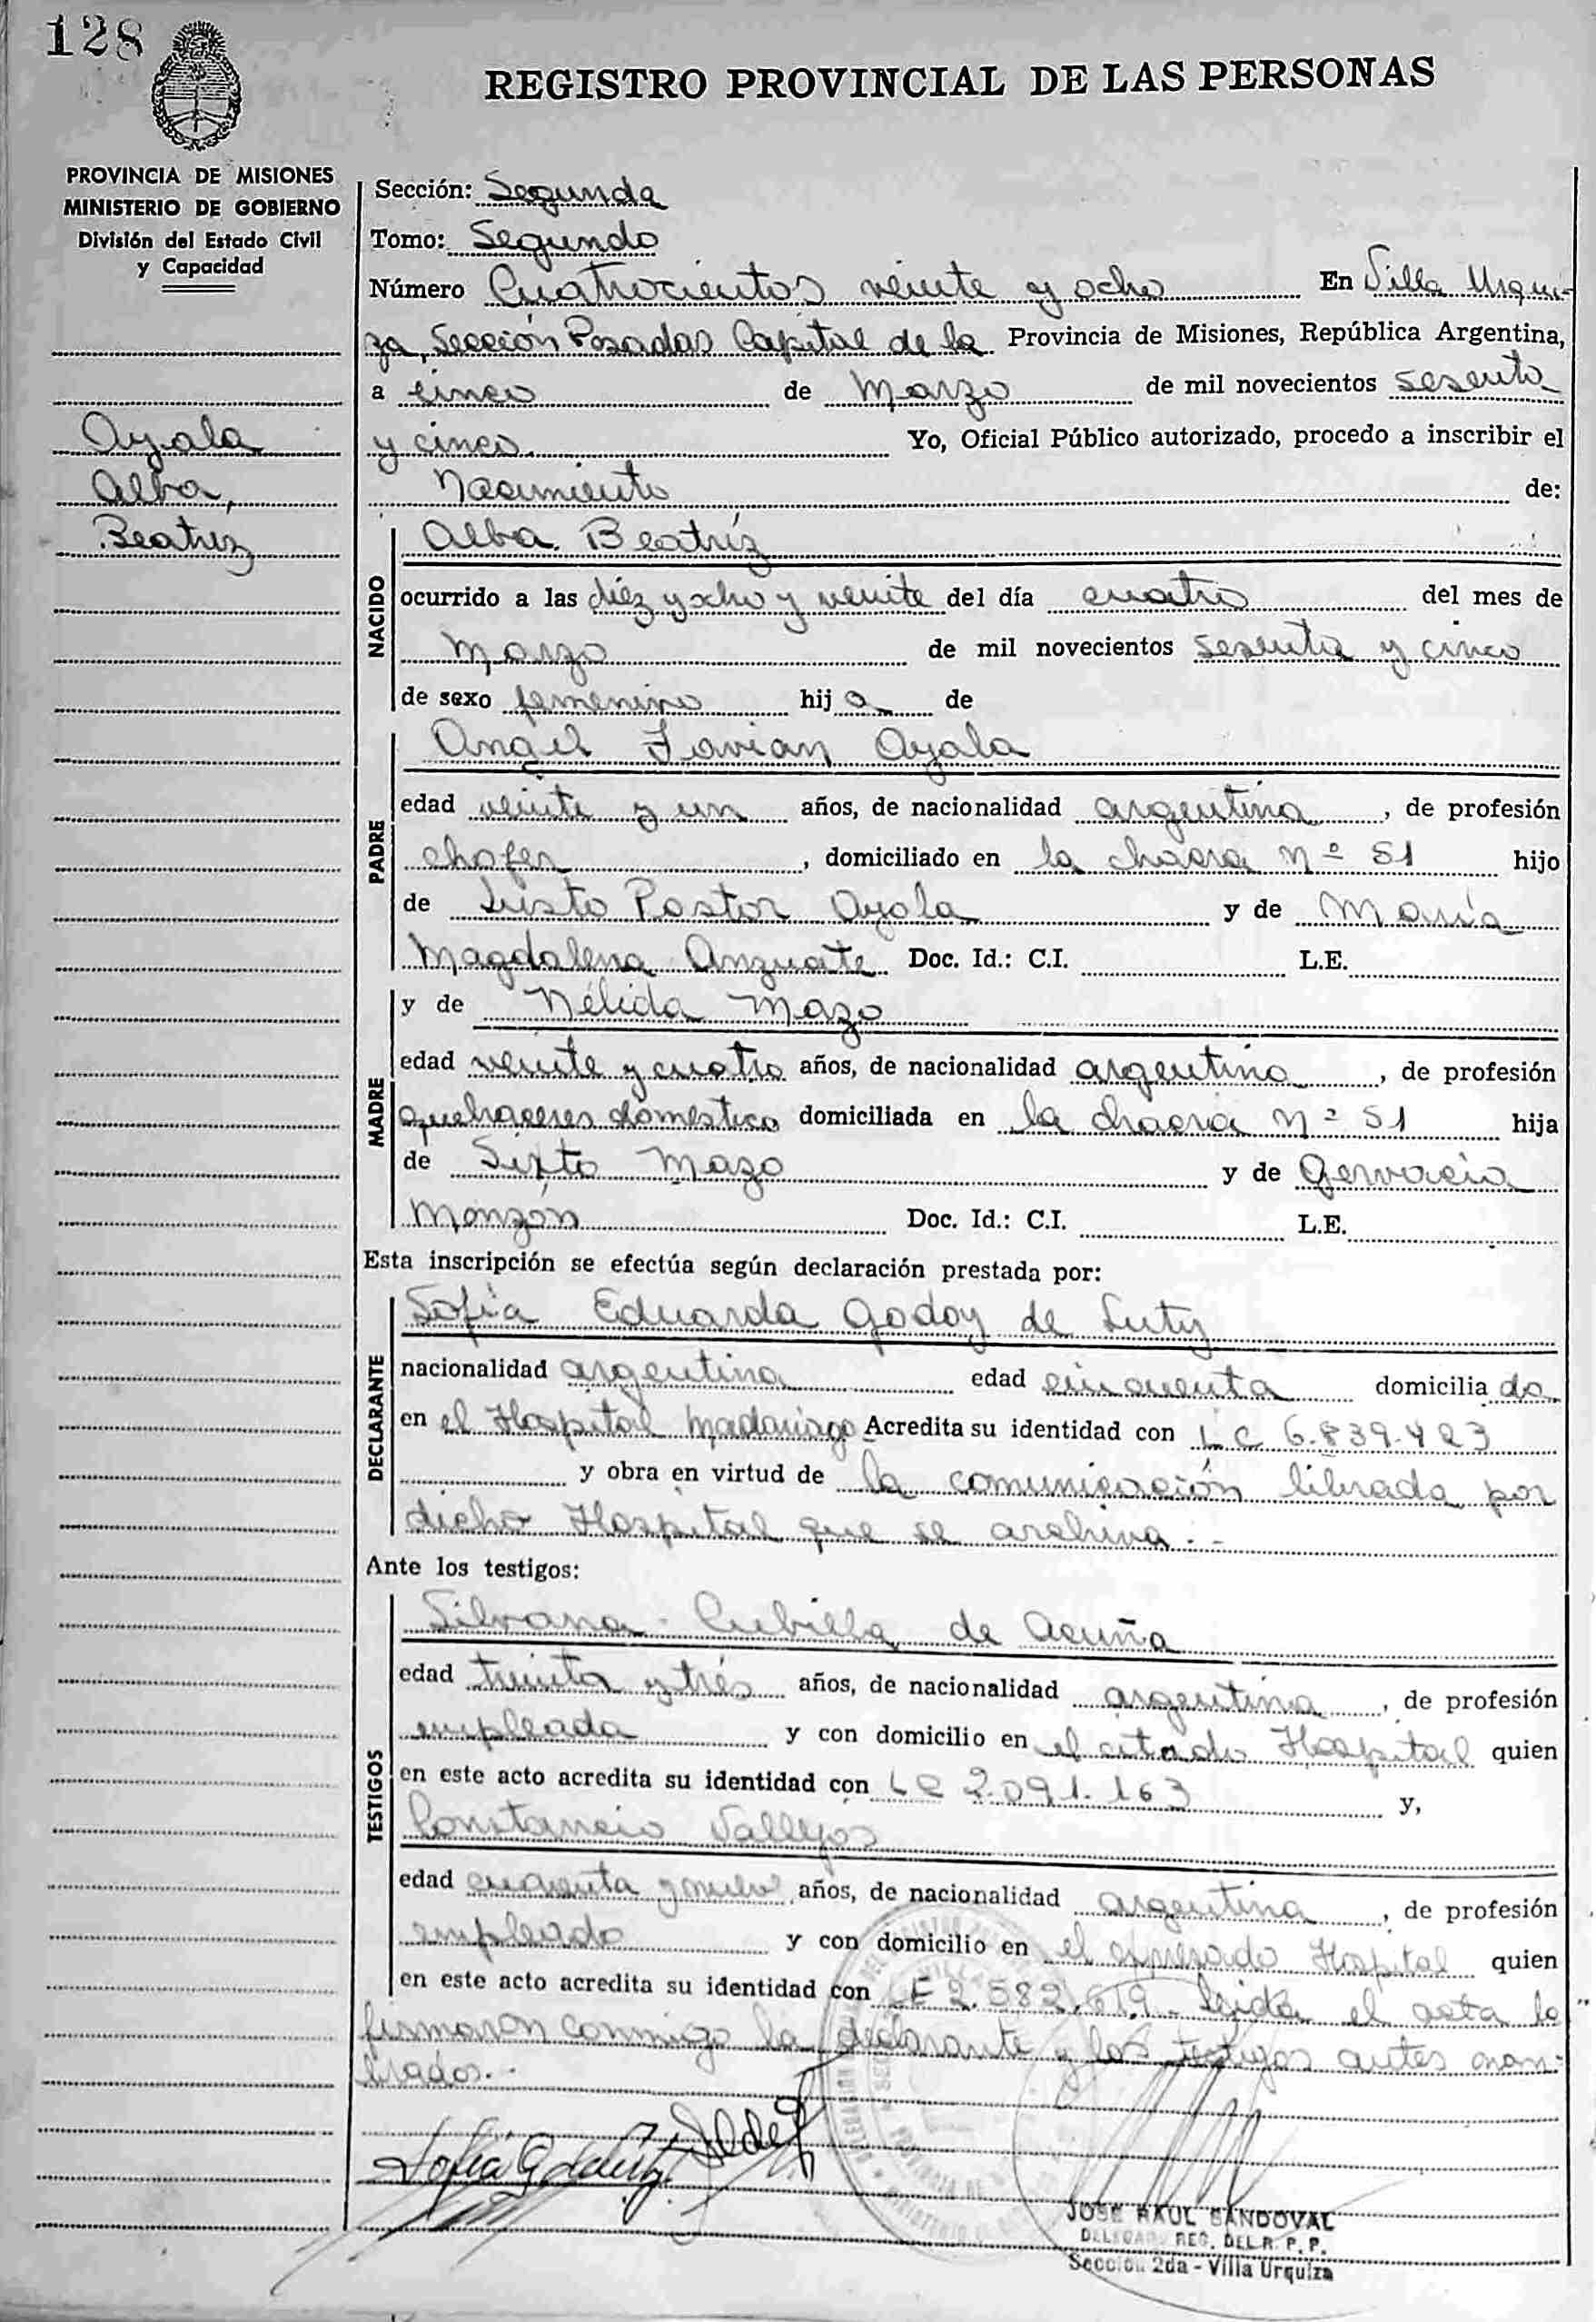 128
REGISTRO PROVINCIAL DE LAS PERSONAS
PROVINCIA DE MISIONES
MINISTERIO DE GOBIERNO
División del Estado Civil
y Capacidad
Ayala
Alba,
Beatríz
Sección: Segunda
Tomo: Segundo
Número Cuatrocientos veinte y ocho En Villa Urqui-
za, Sección Posadas Capital de la Provincia de Misiones, República Argentina,
a cinco de Marzo de mil novecientos sesenta
y cinco. Yo, Oficial Público autorizado, procedo a inscribir el
Nacimiento de:
NACIDO
Alba Beatríz
ocurrido a las diéz y ocho y veinte del día cuatro del mes de
Marzo de mil novecientos sesenta y cinco
de sexo femenino hij a de
PADRE
Angel Favian Ayala
edad veinte y un años, de nacionalidad argentina, de profesión
chofer, domiciliado en la chacra Nº 51 hijo
de Justo Pastor Ayala y de María
Magdalena Anzuate Doc. Id.: C.I. L.E.
MADRE
y de Nélida Mazo
edad veinte y cuatro años, de nacionalidad argentina, de profesión
quehaceres domestico domiciliada en la chacra Nº 51 hija
de Sixto Mazo y de Gervacia
Monzón Doc. Id.: C.I. L.E.
Esta inscripción se efectúa según declaración prestada por:
DECLARANTE
Sofía Eduarda Godoy de Luty
nacionalidad argentina edad cincuenta domicilia da
en el Hospital Madariaga Acredita su identidad con L C 6.839.423
y obra en virtud de la comunicación librada por
dicho Hospital que se archiva.-
Ante los testigos:
TESTIGOS
Silvana Cubilla de Acuña
edad treinta y trés años, de nacionalidad argentina, de profesión
empleada y con domicilio en el citado Hospital quien
en este acto acredita su identidad con L C 2.091.163 y,
Constancio Vallejos
edad cuarenta y nueve años, de nacionalidad argentina, de profesión
empleado y con domicilio en el expresado Hospital quien
en este acto acredita su identidad con LE 2.582.619.- Leída el acta la
firmaron conmigo la declarante y los testigos antes nom-
brados.-
JOSE RAUL SANDOVAL
DELEGADO REG. DEL R. P. P.
Sección 2da - Villa Urquiza